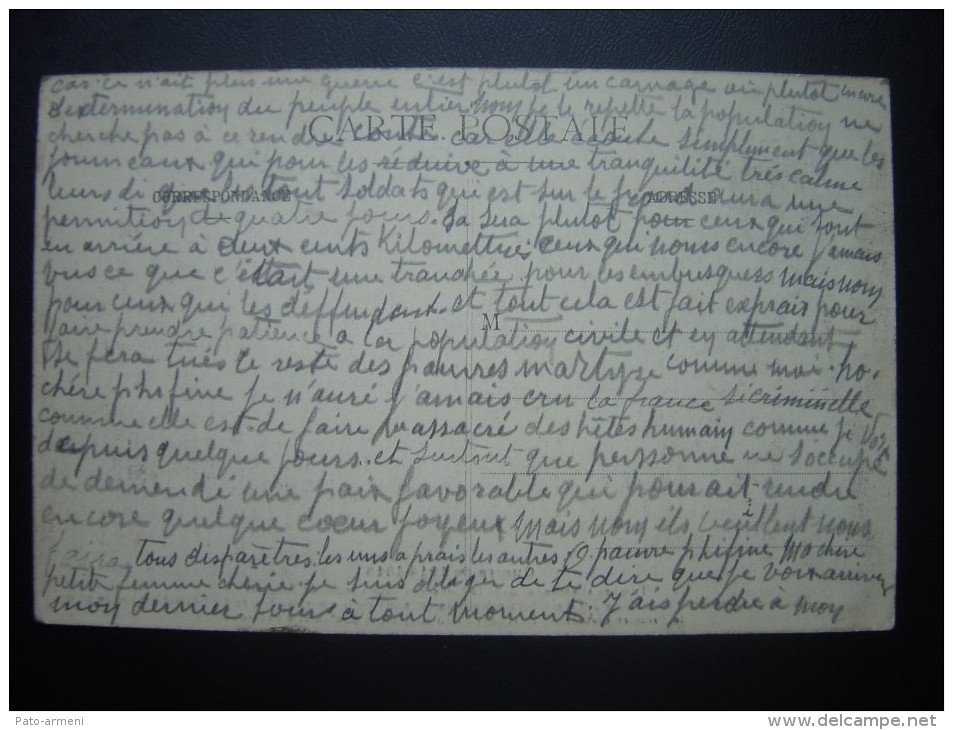 car ci n'ait plus une guerre c'est plutot un carnage ou plutot
d'extermination du peuple entier nom je le repette la population ne
CARTE POSTALE
cherche pas à ce rendre car elle simplement que les
journeaux qui pour les réduire à une tranquilité très calme
CORRESPONDANCE
ADRESSE
leurs di que tout soldats qui est sur le front aura une
permition de quatre jours. sa sera plutot pour ceux qui sont
en arrière à deux cents Kilomettres ceux qui nons encore jamais
vus ce que c'ettait une tranchée pour les embusquers mais non
pour ceux qui les deffendent. et tout cela est fait exprais pour
M
faire prendre patience a la population civile et en attendant
se fera tués le reste des pauvres martyre comme moi. ho.
chére phifine je n'auré j'amais cru la france si criminelle
comme elle est de faire massacré des bêtes humain comme je vois
depuis quelque jours. et surtout que personne ne s'occupe
de demendé une paix favorable qui pourait rendre
i
encore quelque coeur joyeux mais nom ils veuillent nous
faire tous disparêtres les uns aprais les autres. O pauvre phifine ma chère
petite femme cherie je suis obliger de te dire que je vois arriver
mon dernier jours a tout moment. J'ais perdre à mon
Pato-armeni
www.delcampe.net